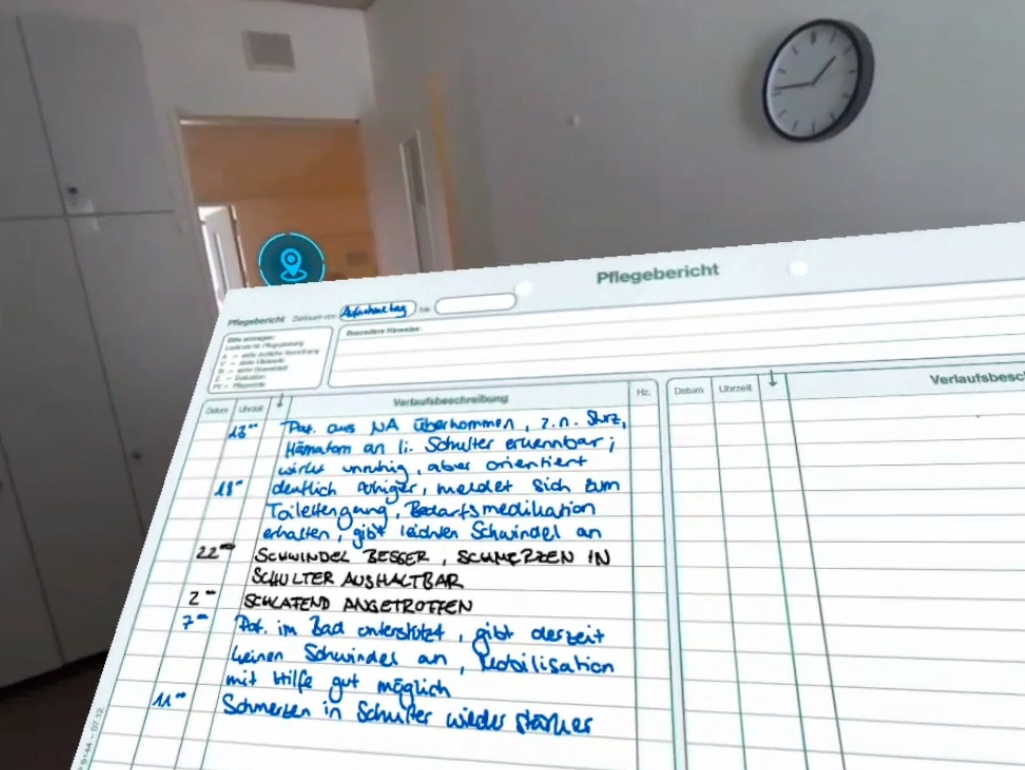 Pflegebericht
Pflegebericht Zeitraum von Aufnahmetag bis
Besondere Hinweise:
Datum Uhrzeit Verlaufsbeschreibung Hz. Datum Uhrzeit Verlaufsbesch
13⁰⁰ Pat. aus NA überkommen, z.n. Sturz,
Hämatom an li. Schulter erkennbar;
wirkt unruhig, aber orientiert
18⁰⁰ deutlich ruhiger, meldet sich zum
Toilettengang, Bedarfsmedikation
erhalten, gibt leichten Schwindel an
22⁰⁰ SCHWINDEL BESSER, SCHMERZEN IN
SCHULTER AUSHALTBAR
2⁰⁰ SCHLAFEND ANGETROFFEN
7⁰⁰ Pat. im Bad unterstützt, gibt derzeit
keinen Schwindel an, Mobilisation
mit Hilfe gut möglich
11⁰⁰ Schmerzen in Schulter wieder stärker